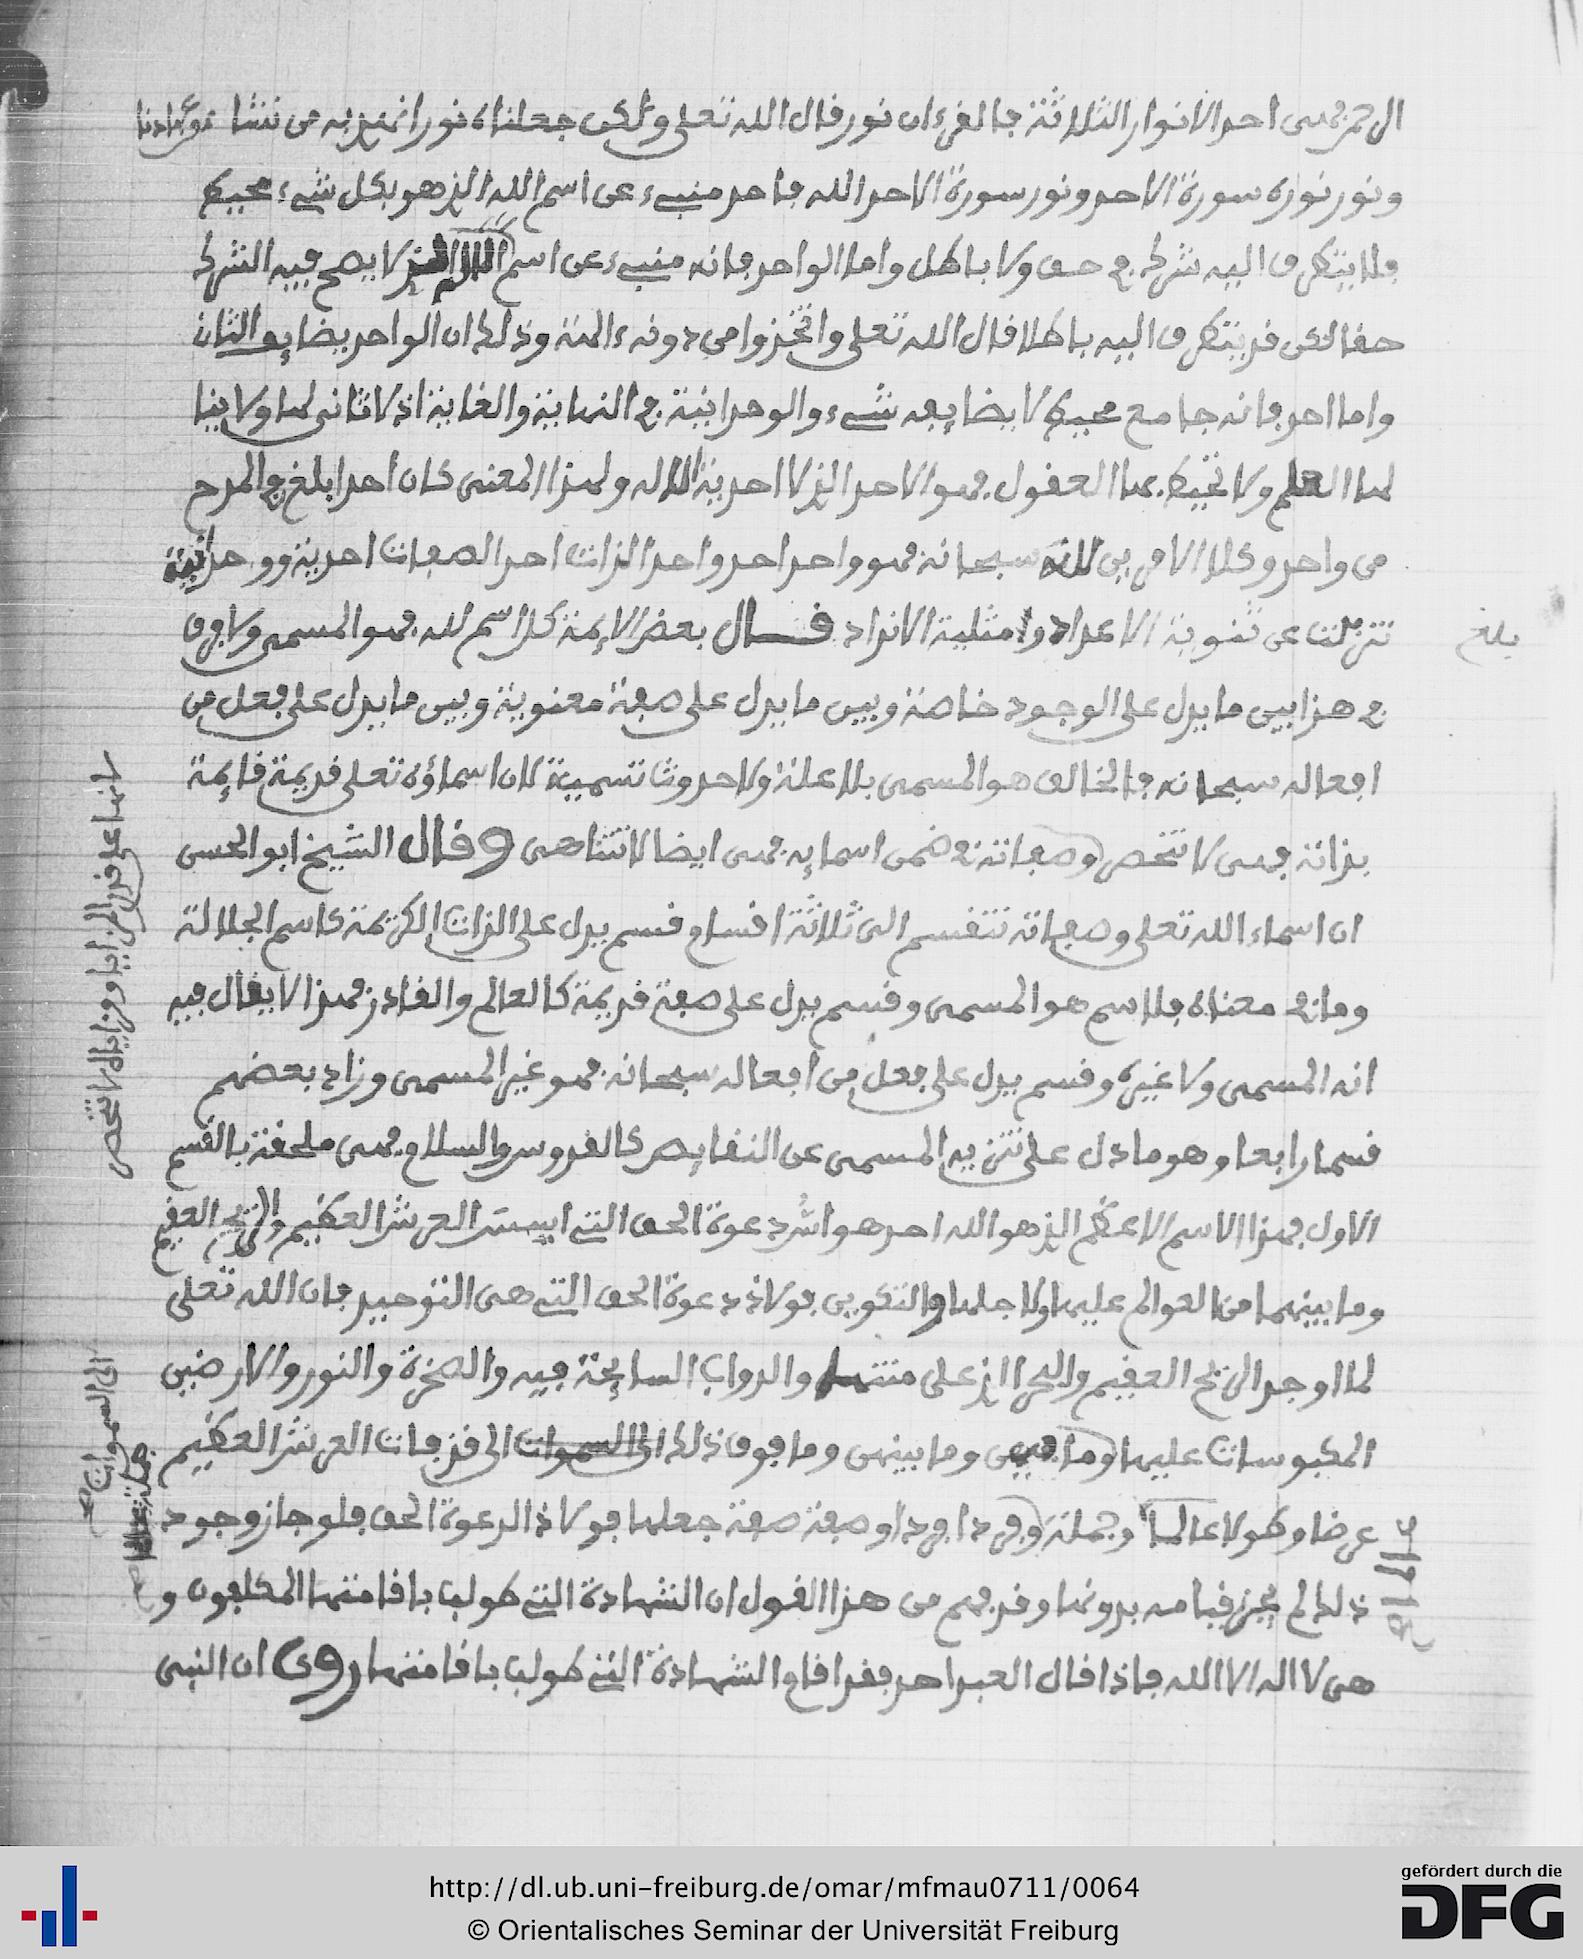 الرحمن فهى احد الانوار الثلاثة فالقرءان نور قال الله تعلى ولكن جعلناه نورا نهدى به من نشاء من عبادنا
ونور نوره سورة الاحد ونور سورة الاحد الله فاحد منبىء عن اسم الله الذى هو بكل شىء محيط
فلا يتطرق اليه شرك فى حق ولا باطل واما الواحد فانه منبىء عن اسم الاله الذى لا يصح فيه الشرك
حقا لكن قد يتطرق اليه باطلا قال الله تعلى واتخذوا من دونه ءالهة وذلك ان الواحد يضايفه الثان
واما احد فانه جامع محيط لا يضايفه شىء والوحدانية فى النهاية والغاية اذ لا ثانى لها ولا
لها العلم ولا تحيط بها العقول فهو الاحد الذى لا احدية الا له ولهذا المعنى كان احد ابلغ فى المدح
من واحد وكلا الامرين لله سبحانه فهو واحد احد واحد الذات احد الصفات احدية ووحدانية
تنزلت عن ثنوية الاعداد وامثلية الانداد قال بعض الايمة كل اسم لله فهو المسمى ولا فرق
بلغ
فى هذا بين ما يدل على الوجود خاصة وبين ما يدل على صفة معنوية وبين ما يدل على فعل من
افعاله سبحانه فالخالق هو المسمى بلا علة ولا حدوث تسمية لان اسماؤه تعلى قديمة قايمة
بذاته فهى لا تنحصر وصفاته فى ضمن اسمايه فهى ايضا لا تتناهى وقال الشيخ ابو الحسن
لانها على قدر المزايا ومزاياه لا تنحصر
ان اسماء الله تعلى وصفاته تنقسم الى ثلاثة اقسام قسم يدل على الذات الكريمة كاسم الجلالة
وما فى معناه فالاسم هو المسمى وقسم يدل على صفة قديمة كالعالم والقادر فهذا لا يقال فيه
انه المسمى ولا غيره وقسم يدل على فعل من افعاله سبحانه فهو غير المسمى وزاد بعضهم
قسما رابعا وهو ما دل على تنزيه المسمى عن النقايص كالقدوس والسلام فهى ملحقة بالقسم
الاول فهذا الاسم الاعظم الذى هو الله احد هو اشد دعوة الحق التى اسست العرش العظيم والريح العقيم
وما بينهما من العوالم عليها ولاجلها والتكوين فولاذ دعوة الحق التى هى التوحيد فان الله تعلى
لما اوجد الريح العقيم والبحر الذى على متنها والدواب السابحة فيه والصخرة والنور والارضين
المكبوسات عليها وما فيهن وما بينهن وما فوق ذلك الى السموات الى قذفات العرش العظيم
الى السموات صح
عرضا وطولا عالما وجملة وفردا فردا وصفة صفة جعلها فولاذ الدعوة الحق فلو جاز وجود
ذلك لم يجز قيامه بدونها وقد فهم من هذا القول ان الشهادة التى طولب باقامتها المكلفون و
هى لا اله الا الله فاذا قال العبد احد فقد اقام الشهادة التى طولب باقامتها روى ان النبى
http://dl.ub.uni-freiburg.de/omar/mfmau0711/0064
© Orientalisches Seminar der Universität Freiburg
gefördert durch die
DFG